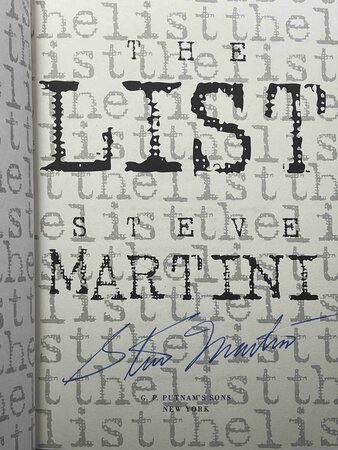 THE
LIST
STEVE
MARTINI
Steve Martini
G. P. PUTNAM'S SONS
NEW YORK